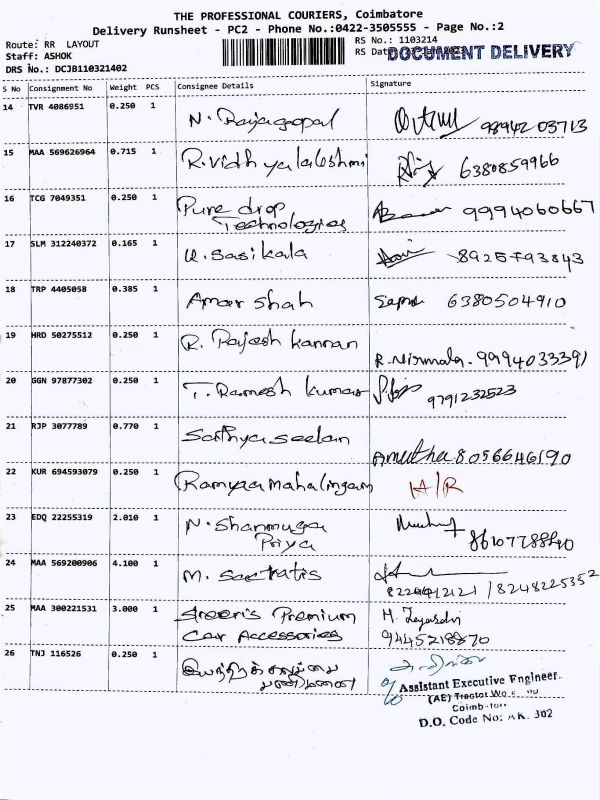 THE PROFESSIONAL COURIERS, Coimbatore
Delivery Runsheet - PC2 - Phone No.:0422-3505555 - Page No.:2
Route: RR LAYOUT
RS No.: 1103214
Staff: ASHOK
RS Dat
DOCUMENT DELIVERY
DRS No.: DCJB110321402
S No Consignment No Weight PCS Consignee Details Signature
14 TVR 4086951 0.250 1 N. Rajagopal 98942 03713
15 MAA 569626964 0.715 1 R. Vidhyalakshmi 6380859966
16 TCG 7049351 0.250 1 Pure drop 9994060667
Technologies
17 SLM 312240372 0.165 1 U. Sasikala 8925793843
18 TRP 4405058 0.385 1 Amar Shah 6380504910
19 HRD 50275512 0.250 1 R. Rajesh kannan
R. Nirmala. 9994033391
20 GGN 97877302 0.250 1 T. Ramesh kumar 9791232523
21 RJP 3077789 0.770 1 Sathyaseelan
Amutha 8056646190
22 KUR 694593079 0.250 1 Ramyaa mahalingam H/R
23 EDQ 22255319 2.010 1 N. Shanmuga
Priya
24 MAA 569200906 4.100 1 M. Socratis
/8248225352
25 MAA 300221531 3.000 1 Sreeni's Premium
Car Accessories 9445218870
26 TNJ 116526 0.250 1
Assistant Executive Engineer.
(AE)
Coimb
D.O. Code No: 302